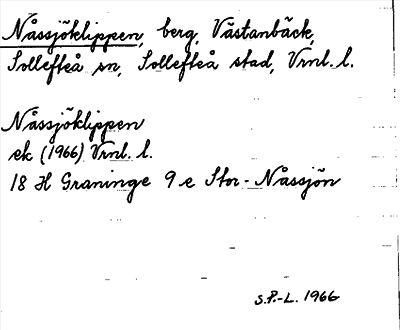 Nässjöklippen, berg, Västanbäck,
Sollefteå sn, Sollefteå stad, Vrnl. l.
Nässjöklippen
ek (1966) Vrnl. l.
18 H Graninge 9 e Stor-Nässjön
S.P.-L. 1966